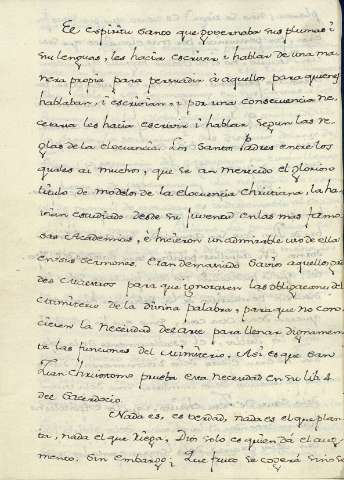 El espiritu Santo que governaba sus plumas i
su lenguas, les hacia escrivir i hablar de una ma
nera propia para persuadir à aquellos para quienes
hablaban, i escrivian, i por una consecuencia ne
cesaria les hacia escrivir i hablar segun las re
glas de la elocuencia. Los Santos Padres entre los
quales ai muchos, que se an merecido el glorioso
titulo de modelos de la elocuencia Christiana, la ha
vian estudiado desde su juventud en las mas famo
sas Academias, è hicieron un admirable uso de ella
en sus sermones. Eran demasiado Savios aquellos gran
des Maestros para que ignorasen las obligaciones del
Ministerio de la divina palabra, para que no cono
ciesen la necesidad del arte para llenar dignamen
te las funciones del Ministerio. Asi es que San
Juan Chrisostomo prueba esta necesidad en su lib. 4.
del Sacerdocio.
Nada es, es verdad, nada es el que plan
ta, nada el que riega, Dios solo es quien dá el aug
mento. Sin embargo; Que fruto se cogerá sino se